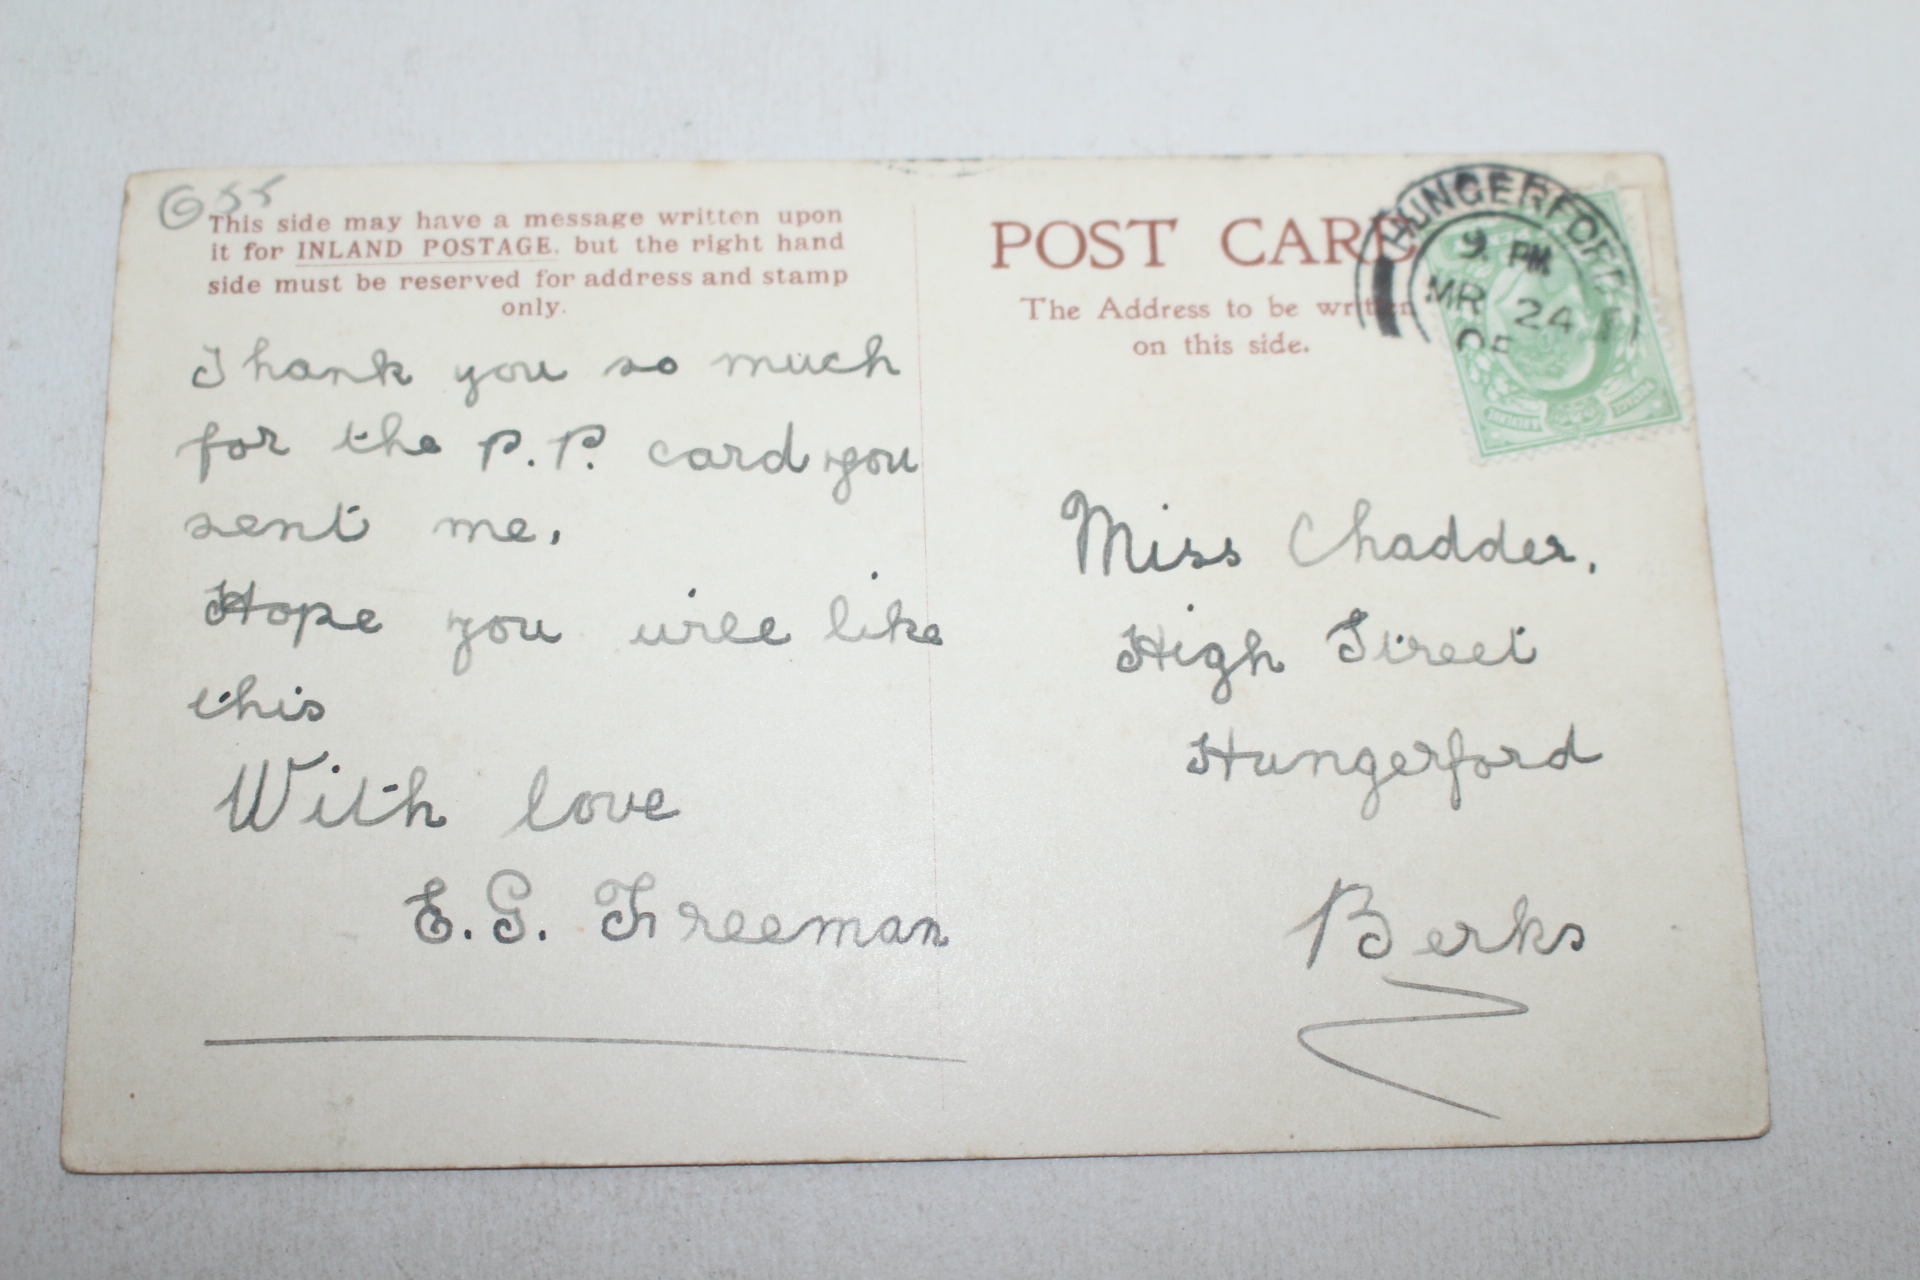 G55
This side may have a message written upon
it for INLAND POSTAGE, but the right hand
side must be reserved for address and stamp
only.
Thank you so much
for the P.P. card you
sent me.
Hope you will like
this
With love
E. G. Freeman
POST CARD
The Address to be written
on this side.
HUNGERFORD
9. PM
MR 24
05
POSTAGE
Miss Chadder.
High Street
Hungerford
Berks